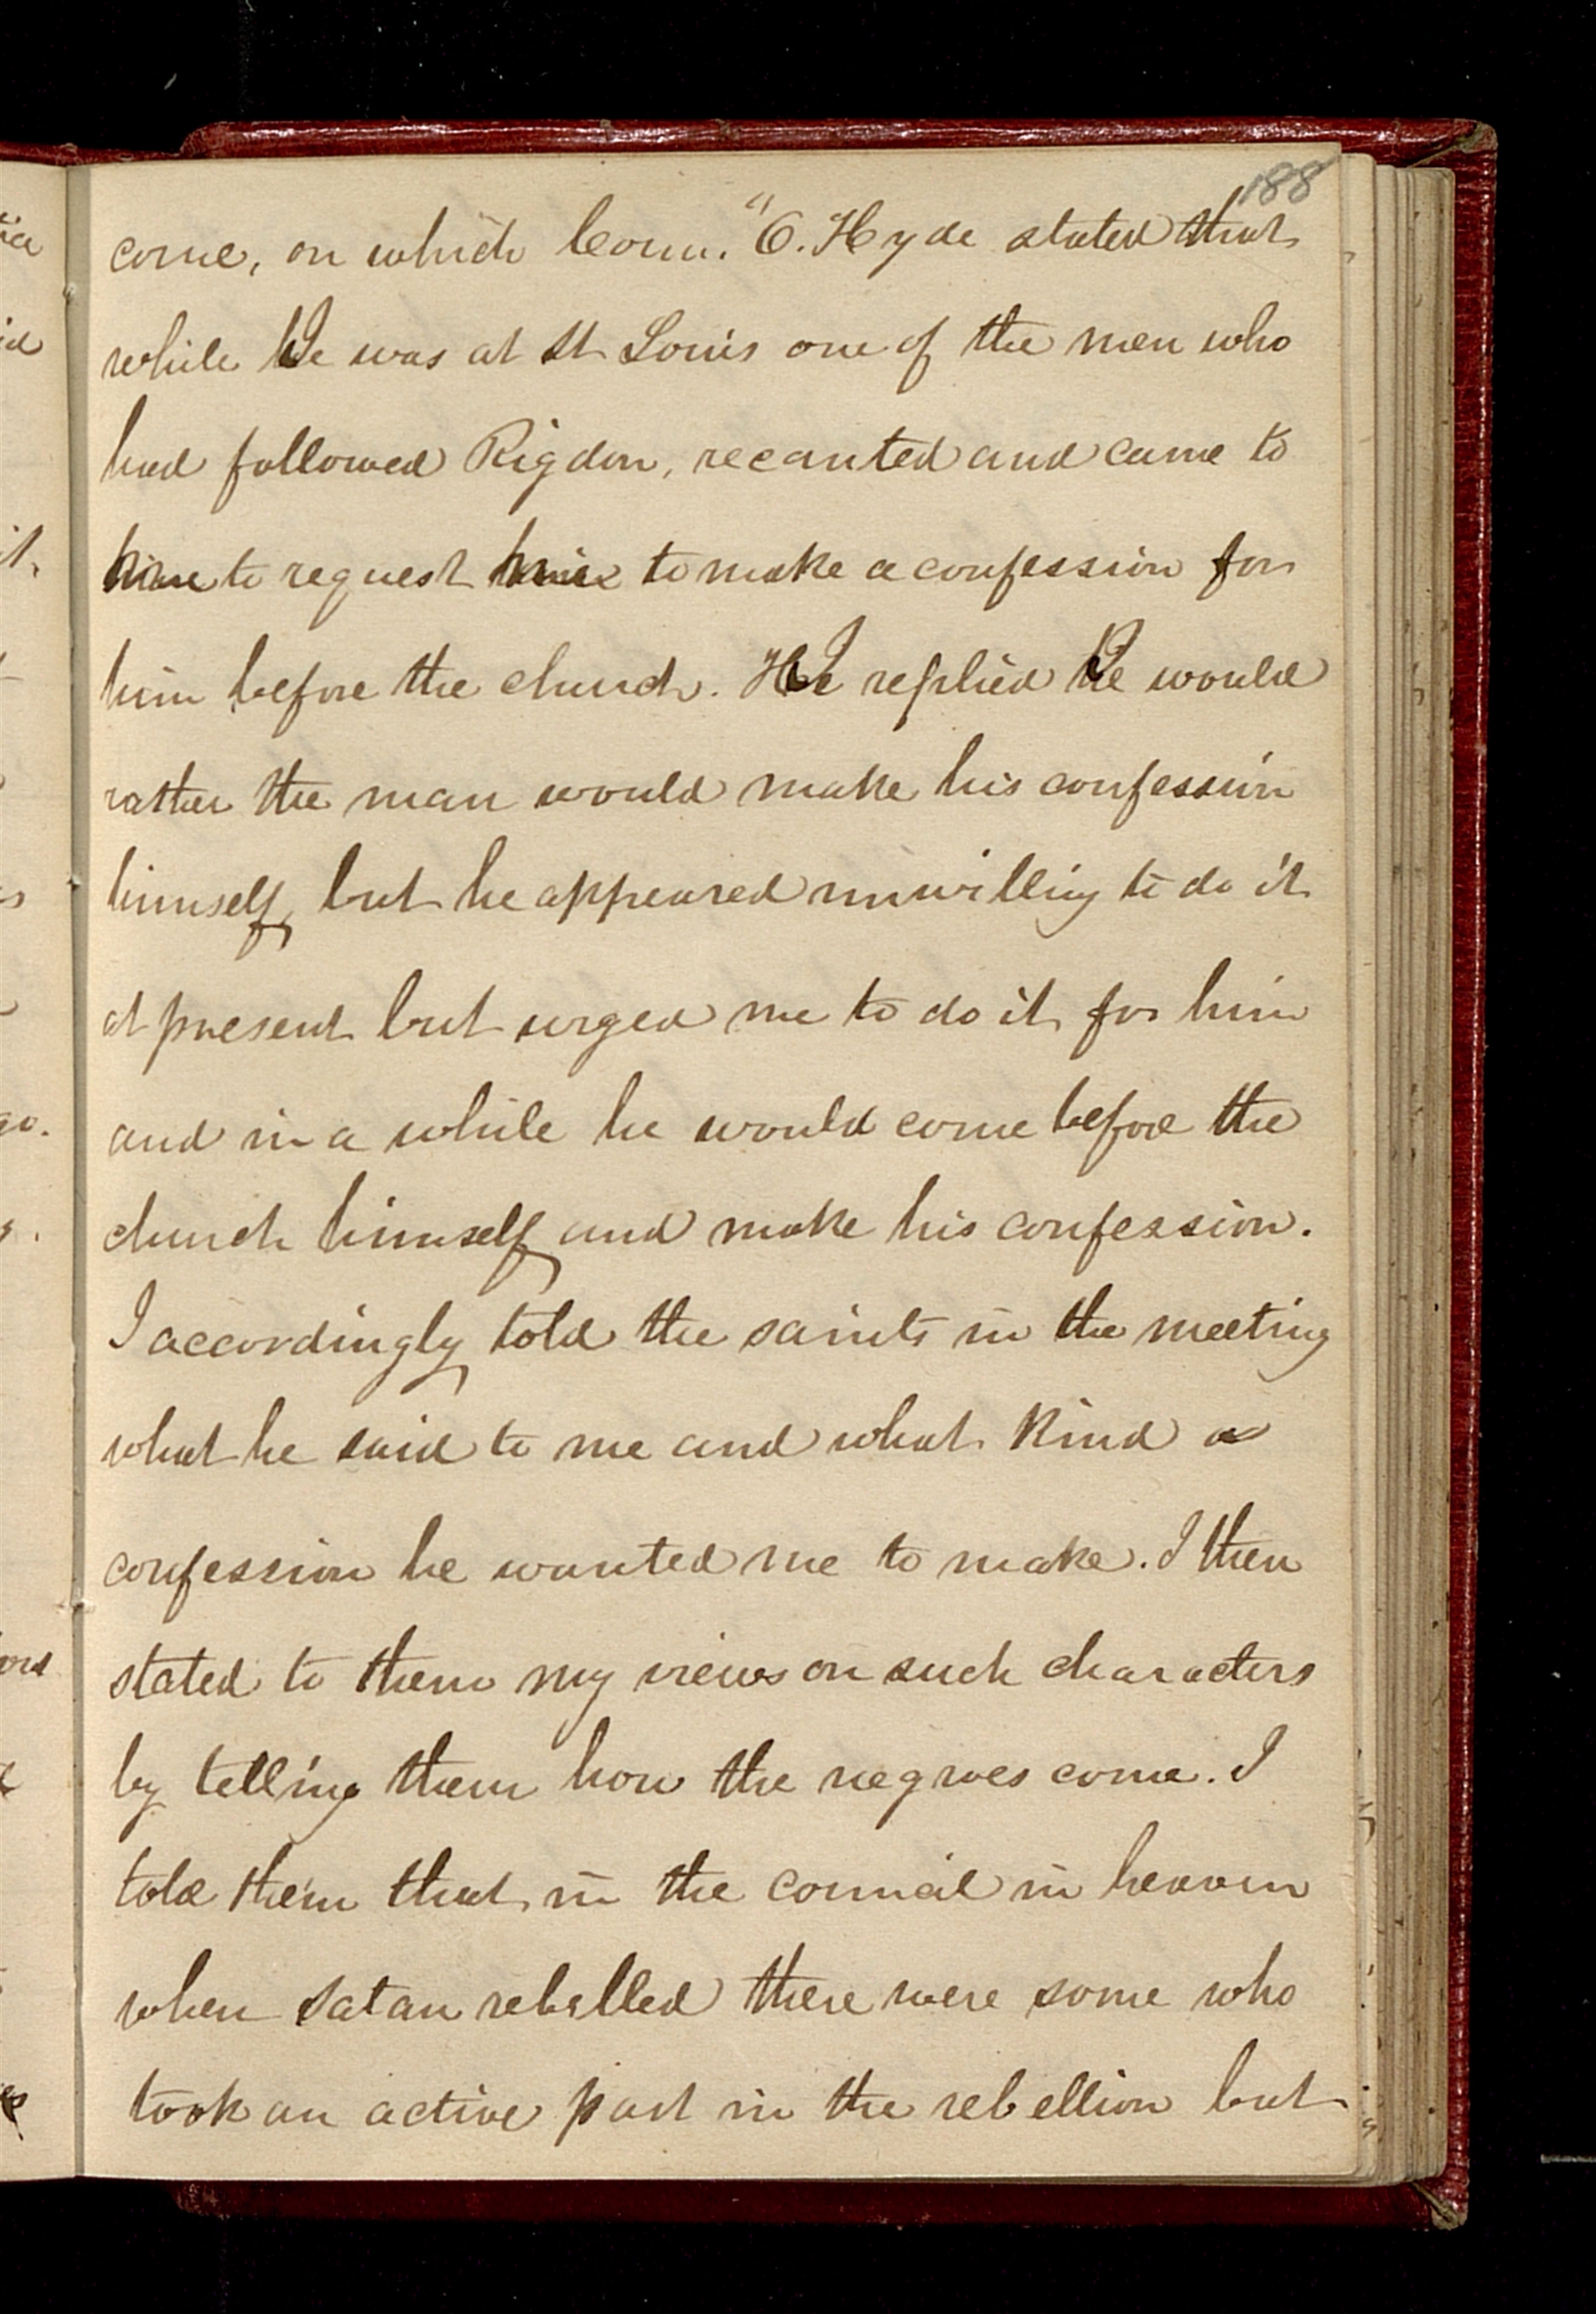 188
come, on which Coun. "O. Hyde stated that
while I was at St Louis one of the men who
had followed Rigdon, recanted and came to
to request to make a confession for
him before the church. I replied I would
rather the man would make his confession
himself, but he appeared unwilling to do it
at present but urged me to do it for him
and in a while he would come before the
church himself and make his confession.
I accordingly told the saints in the meeting
what he said to me and what kind a
confession he wanted me to make. I then
stated to them my views on such characters
by telling them how the negroes come. I
told them that in the council in heaven
when Satan rebelled there were some who
took an active part in the rebellion but